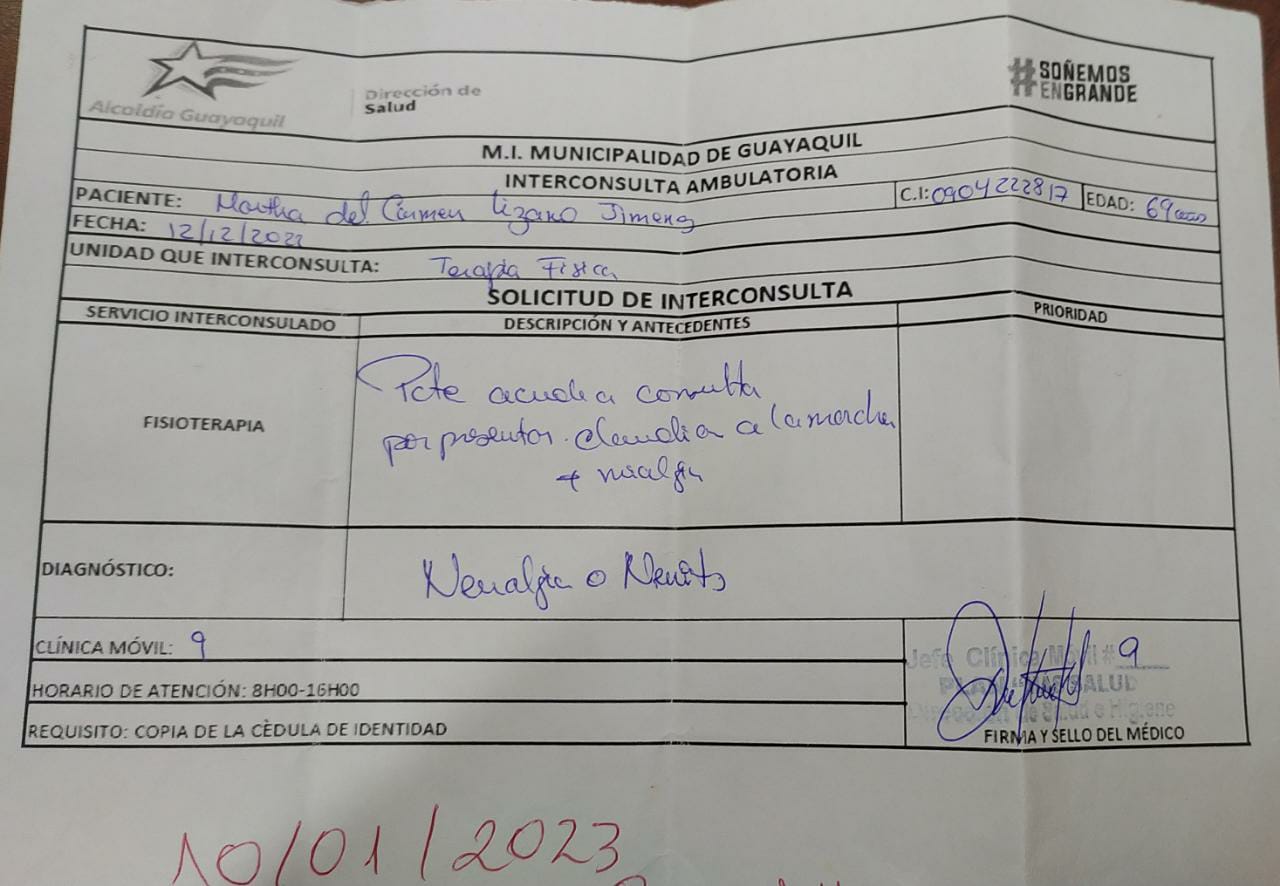 Alcaldía Guayaquil
Dirección de
Salud
#SOÑEMOS
ENGRANDE
M.I. MUNICIPALIDAD DE GUAYAQUIL
INTERCONSULTA AMBULATORIA
PACIENTE: Martha del Carmen Lizano Jimenez C.I: 0904222817 EDAD: 69 años
FECHA: 12/12/2022
UNIDAD QUE INTERCONSULTA: Terapia Fisica
SOLICITUD DE INTERCONSULTA
SERVICIO INTERCONSULADO DESCRIPCIÓN Y ANTECEDENTES PRIORIDAD
FISIOTERAPIA
Pcte acude a consulta
por presentar a la marcha
+ mialgia
DIAGNÓSTICO: Neuralgia o Neuritis
CLÍNICA MÓVIL: 9
Jefe Clínica Móvil # 9
SALUD
Dirección de Salud e Higiene
HORARIO DE ATENCIÓN: 8H00-16H00
REQUISITO: COPIA DE LA CÈDULA DE IDENTIDAD
FIRMA Y SELLO DEL MÉDICO
10/01/2023